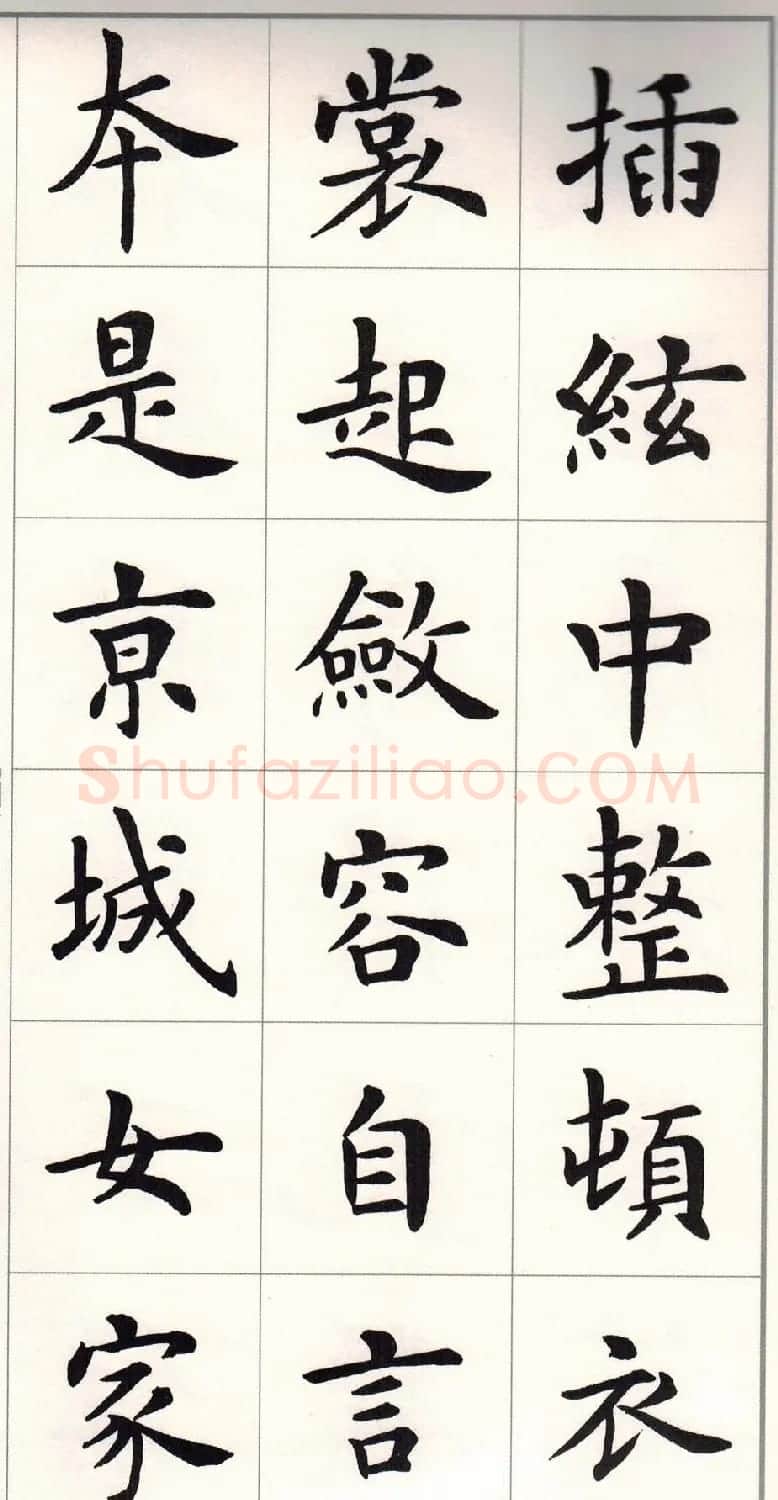 插絃中整頓衣
裳起斂容自言
本是京城女家
Shufaziliao.COM